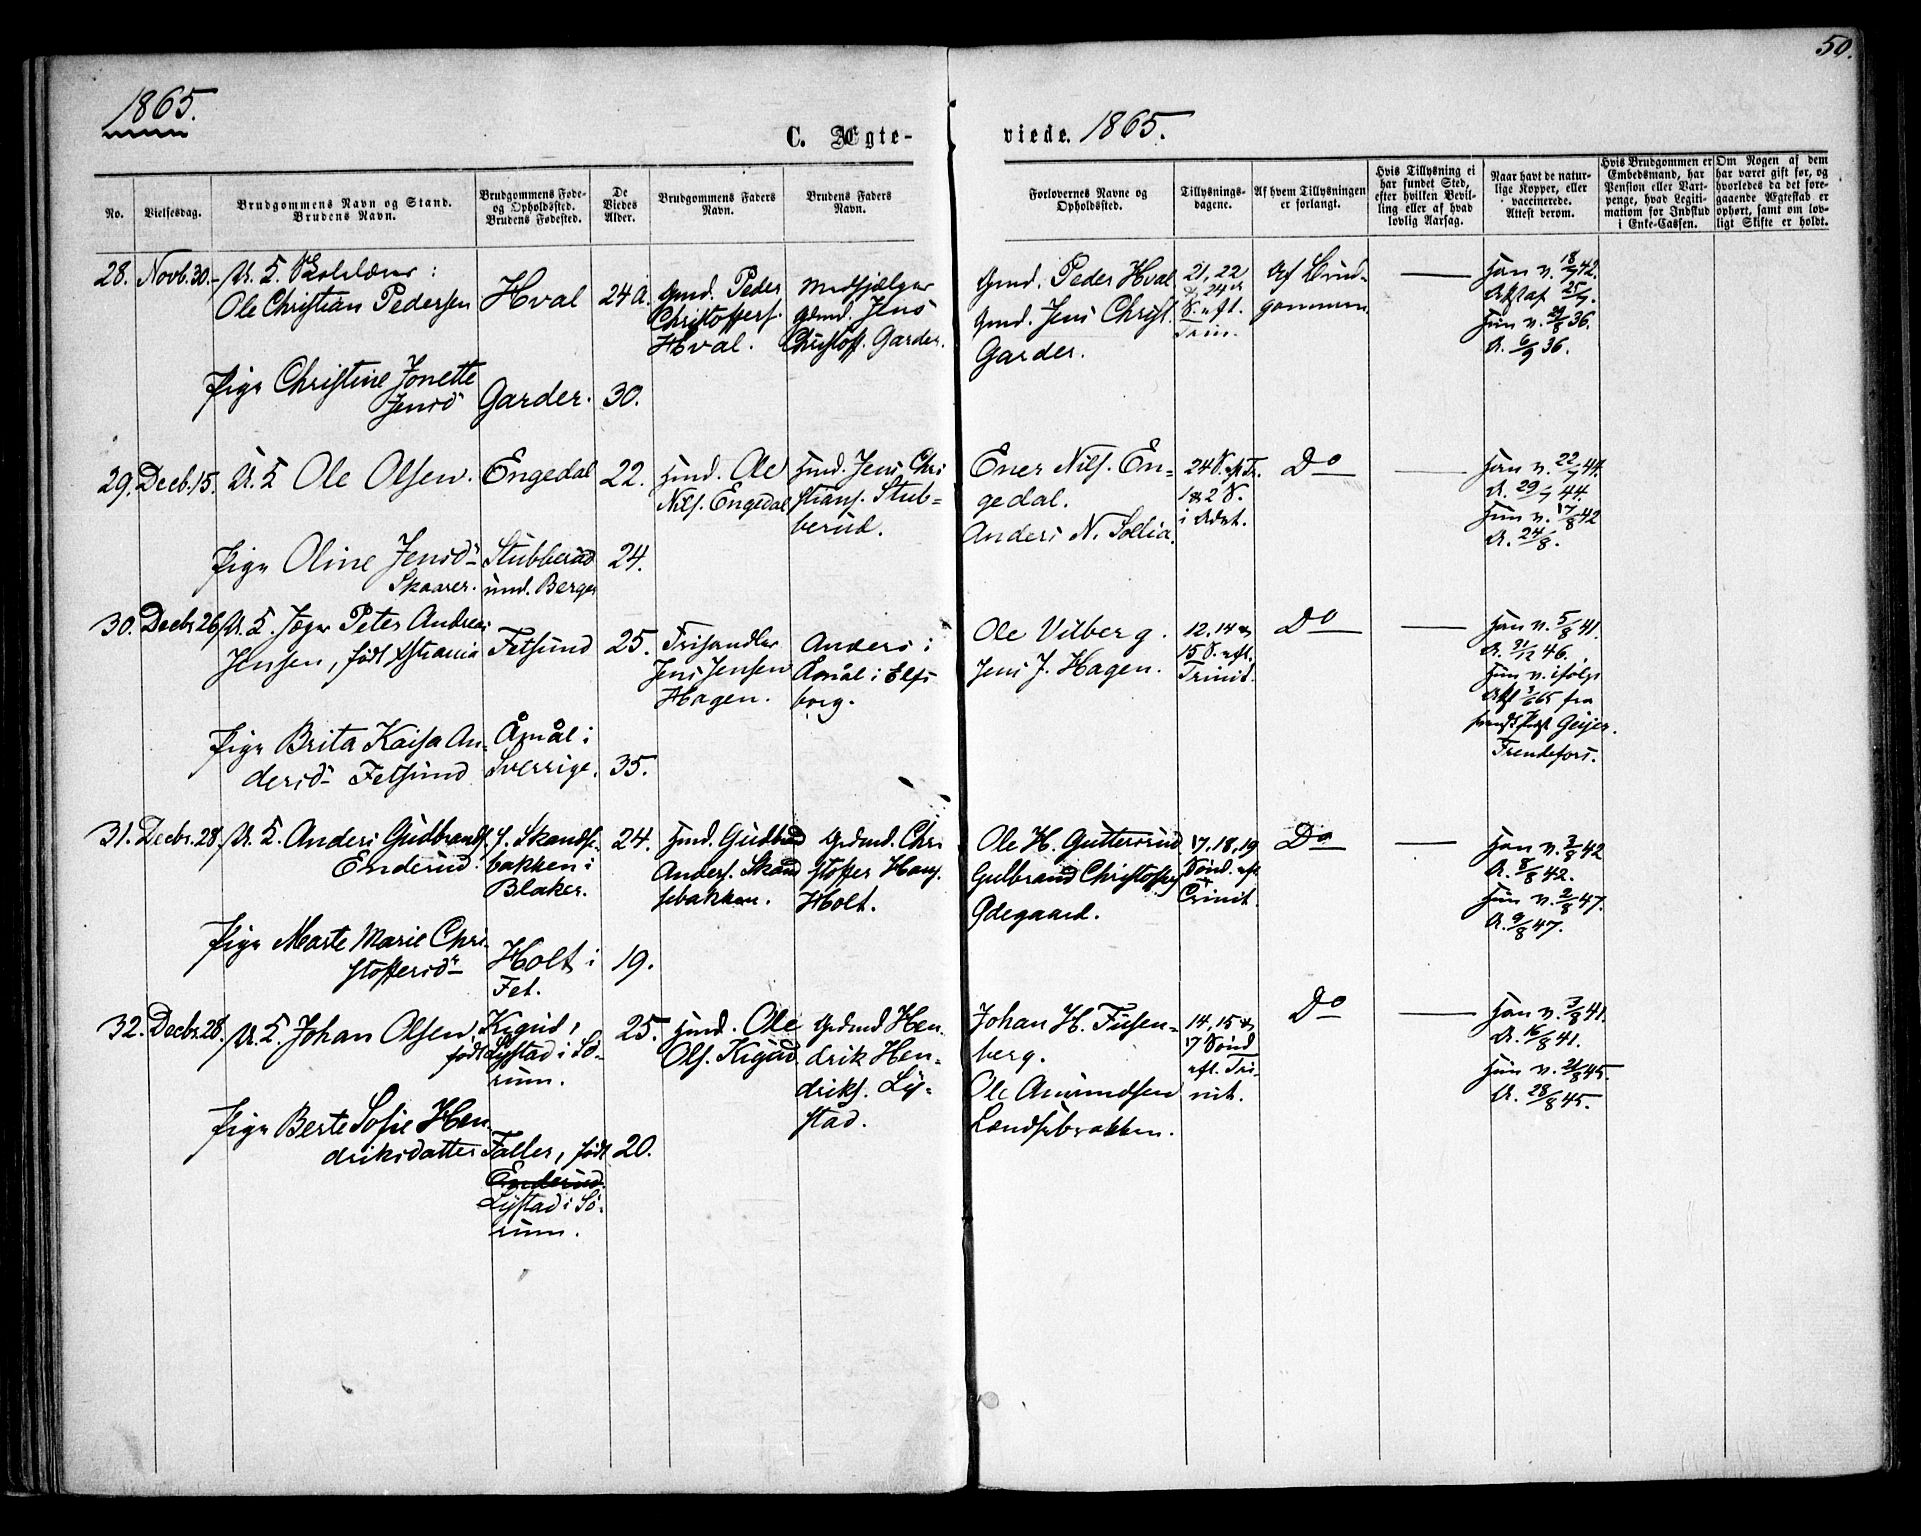 50.
1865.
C. Ægte-
viede. 1865.
No.
Vielsesdag.
Brudgommens Navn og Stand.
Brudens Navn.
Brudgommens Føde-
og Opholdssted.
Brudens Fødested.
De
Viedes
Alder.
Brudgommens Faders
Navn.
Brudens Faders
Navn.
Forlovernes Navne og
Opholdssted.
Tillysnings-
dagene.
Af hvem Tillysningen
er forlangt.
Hvis Tillysning ei
har fundet Sted,
efter hvilken Bevil-
ling eller af hvad
lovlig Aarsag.
Naar havt de natur-
lige Kopper, eller
vaccinerede.
Attest derom.
Hvis Brudgommen er
Embedsmand, har
Pension eller Vart-
penge, hvad Legiti-
mation for Indskud
i Enke-Cassen.
Om Nogen af dem
har været gift før, og
hvorledes da det fore-
gaaende Ægteskab er
ophørt, samt om lov-
ligt Skifte er holdt.
28. Novb. 30.
Ole Christian Pedersen
Hval
24 A.
Gmd. Peder
Christoffers.
Hval.
Gdmd. Jens
Christoff. Garder.
Gmd. Peder Hval
Gmd. Jens Christ.
Garder.
21, 22
& 24de
S. eft.
Trin.
Af Brud-
gommen
Han v. 18/7 42.
Att af 25/7.
Hun v. 29/8 36.
A. 6/9 36.
Pige Christine Jonette
Jensd
Garder.
30.
29. Decb. 15.
U. K. Ole Olsen.
Engedal
22.
Hmd. Ole
Nils. Engedal
Hmd. Jens Chri
stians. Stub-
berud.
Ener Nils. En-
gedal.
Anders N. Sollia.
24 S. eft Tr.
1 & 2 S.
i Advt.
Do
Han v. 22/7 44.
A. 29/7 44.
Hun v. 17/8 42
A. 24/8.
Pige Oline Jensd
Skaarer.
Stubberud
und. Berger
24.
30. Decbr 26
Peter Andreas
Jensen, født
Fetsund
25.
Jens Jensen
Hagen.
Anders i
Åmål i Elfs
borg.
Ole Vilberg.
Jens J. Hagen.
12, 14 &
15 S. eft.
Trinit.
Do
Han v. 5/8 41.
A. 21/12 46.
Hun v. ifølge
Att 3/6 65 fra
Geijer.
Pige Brita Kaisa An-
dersd Fetsund
Åmål i
Sverrige.
35.
31. Decbr. 28.
U. K. Anders Gudbrands.
Enderud
f. Skandse
bakken i
Blaker.
24.
Hmd. Gudbrand
Anders. Skand
sebakken.
Gdmd. Chri
stoffer Hans.
Holt.
Ole H. Guttersrud
Gulbrand Christoffers
Ødegaard.
17, 18, 19
Sønd. eft
Trinit.
Do
Han v. 2/8 42
A. 8/8 42.
Hun v. 2/8 47.
A. 9/8 47.
Pige Marte Marie Chri
stoffersd
Holt i
Fet.
19.
32. Decbr. 28.
U. K. Johan Olsen,
født
Kigud,
Lystad i Sø-
rum.
25.
Hmd. Ole
Ols. Kigud
Gdmd Hen-
drik Hen-
driks. Ly-
stad.
Johan H. Fusen-
berg.
Ole Amundsen
Landsebakken.
14, 15 &
17 Sønd
eft. Tri-
nit.
Do
Han v. 3/8 41.
A. 16/8 41.
Hun v. 21/8 45.
A. 28/8 45.
Pige Berte Sofie Hen
driksdatter
Faller, født
Enderud.
Lystad i Sø-
rum.
20.